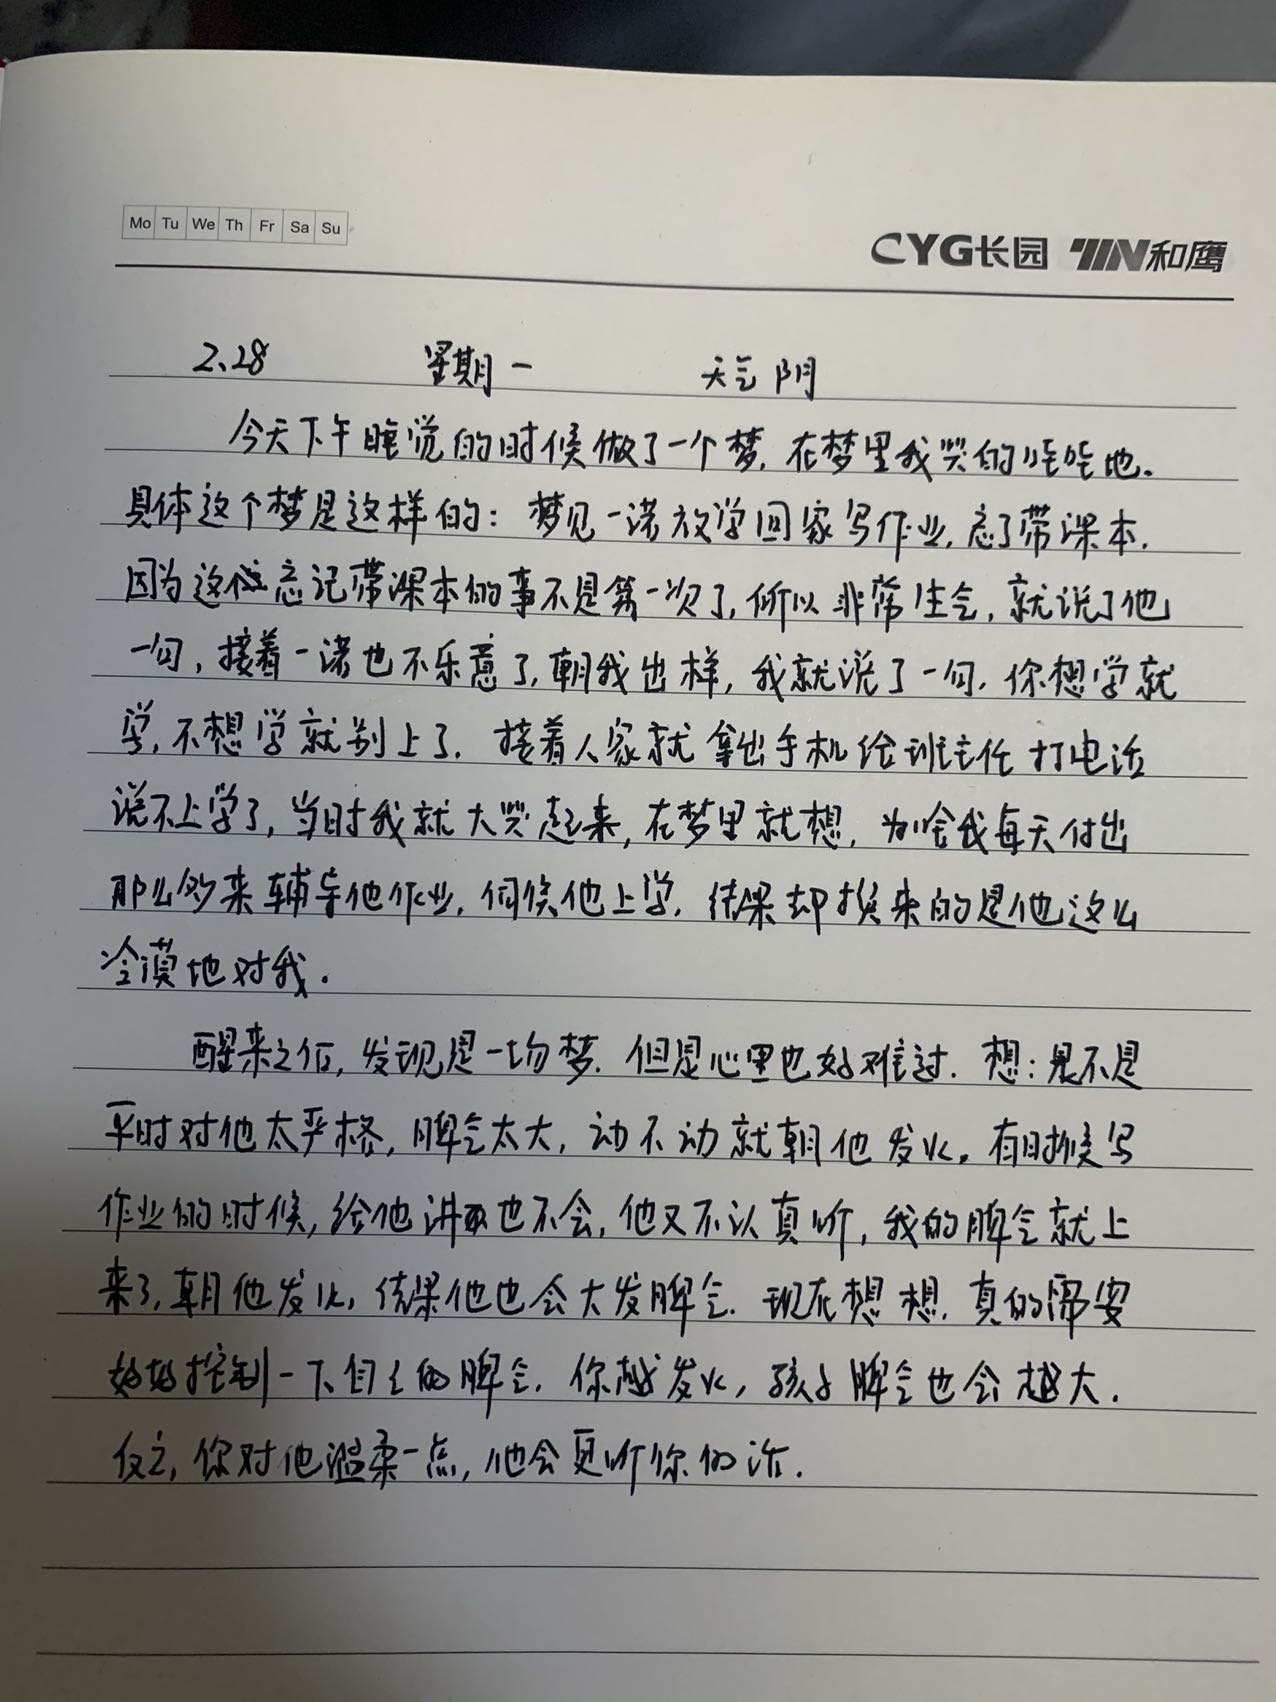 Mo Tu We Th Fr Sa Su
CYG长园 和鹰
2.28 星期一 天气 阴
今天下午睡觉的时候做了一个梦，在梦里我哭的哇哇地。
具体这个梦是这样的：梦见一诺放学回家写作业，忘了带课本，
因为这位忘记带课本的事不是第一次了，所以非常生气，就说了他
一句，接着一诺也不乐意了，朝我出样，我就说了一句，你想学就
学，不想学就别上了，接着人家就拿出手机给班主任打电话
说不上学了，当时我就大哭起来，在梦里就想，为啥我每天付出
那么多来辅导他作业，伺候他上学，结果却换来的是他这么
冷漠地对我。
醒来之后，发现是一场梦，但是心里也好难过，想：是不是
平时对他太严格，脾气太大，动不动就朝他发火。有时候写
作业的时候，给他讲也不会，他又不认真听，我的脾气就上
来了，朝他发火，结果他也会大发脾气。现在想想，真的需要
好好控制一下自己的脾气，你越发火，孩子脾气也会越大。
反之，你对他温柔一点，他会更听你的话。